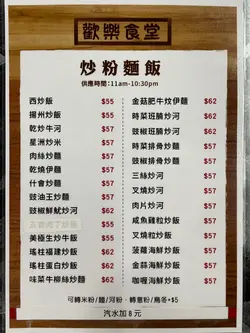 歡樂食堂
炒粉麵飯
供應時間：11am-10:30pm
西炒飯 $55
揚州炒飯 $55
乾炒牛河 $55
星洲炒米 $55
肉絲炒麵 $55
乾燒伊麵 $55
什會炒麵 $55
豉油王炒麵 $55
豉椒鮮魷炒河 $62
$62
美極生炒牛飯 $55
瑤柱福建炒飯 $62
瑤柱蛋白炒飯 $62
味菜牛柳絲炒麵 $62
金菇肥牛炆伊麵 $62
時菜班腩炒河 $62
豉椒班腩炒河 $62
時菜排骨炒麵 $57
豉椒排骨炒麵 $57
三絲炒河 $57
叉燒炒河 $57
肉片炒河 $57
咸魚雞粒炒飯 $57
叉燒粒炒飯 $57
菠蘿海鮮炒飯 $57
金蒜海鮮炒飯 $57
咖喱海鮮炒飯 $57
可轉米粉/麵/河粉．轉意粉/烏冬+$5
汽水加 8 元